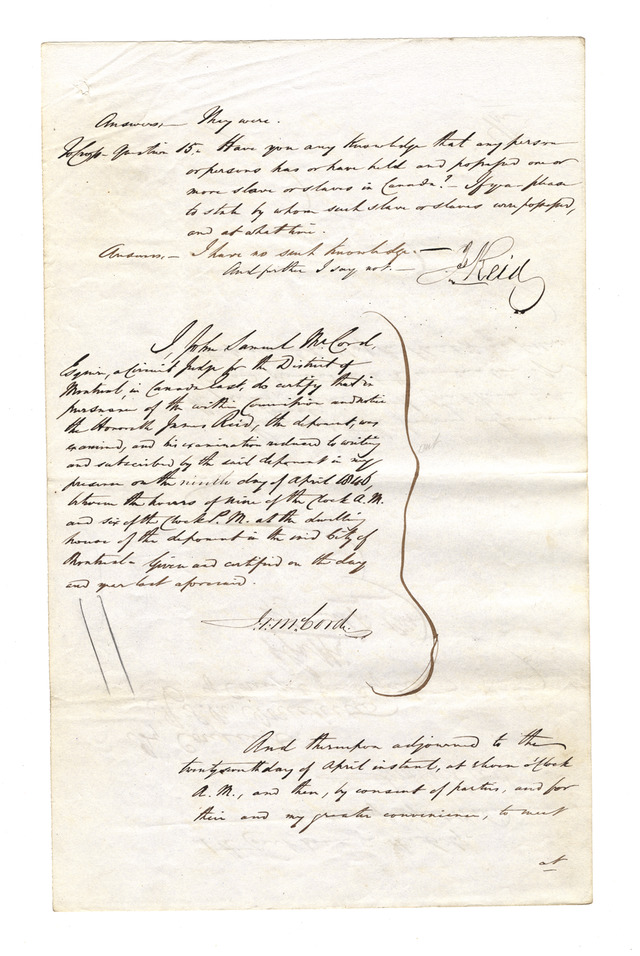 Answer,— They were.
To Cross-Question 15.— Have you any knowledge that any person
or persons has or have held and possessed one or
more slave or slaves in Canada?— If yea please
to state by whom such slave or slaves were possessed,
and at what time.
Answer,— I have no such knowledge.—
And further I say not.— J Reid
I, John Samuel McCord,
Esquire, a Circuit Judge for the District of
Montreal, in Canada East, do certify that in
pursuance of the within Commission and notice
the Honorable James Reid, the deponent, was
examined, and his examination reduced to writing
and subscribed by the said deponent in my
presence on the ninth day of April 1846,
between the hours of nine of the Clock A.M.
and six of the Clock P.M. at the dwelling
house of the deponent in the said City of
Montreal— Given and certified on the day
and year last aforesaid.
J.S. McCord.
And thereupon adjourned to the
day of April instant, at eleven o'Clock
A.M., and then, by consent of parties, and for
their and my greater convenience, to meet
at